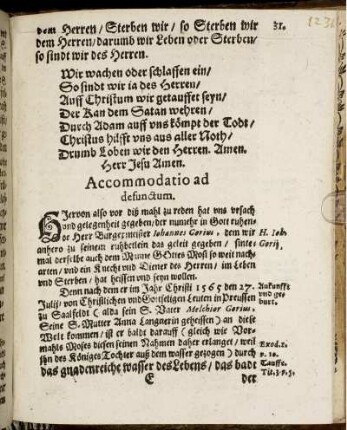 dem Herren/ Sterben wir/ so Sterben wir
dem Herren/ darumb wir Leben oder Sterben/
so sindt wir des Herren.
31.
Wir wachen oder schlaffen ein/
So sindt wir ia des Herren/
Auff Christum wir getauffet seyn/
Der Kan dem Satan wehren/
Durch Adam auff vns kömpt der Todt/
Christus hilfft vns aus aller Noth/
Drumb Loben wir den Herren. Amen.
Herr Jesu Amen.
Accommodatio ad
defunctum.
HJervon also vor diß mahl zu reden hat vns vrsach
vnd gelegenheit gegeben/ der nunmehr in Gott ruhen-
der Herr Burgermeister Iohannes Gorius, dem wir
anhero zu seinem ruhbetlein das geleit gegeben/ sintemal
derselbe auch dem Manne GOttes Mosi so weit nach-
arten/ vnd ein Knecht vnd Diener des Herren/ im Leben
vnd Sterben/ hat heissen vnd seyn wollen.
H. Ioh.
Gorij.
Denn nach dem er im Jahr Christi 1565 den 27.
Julij von Christlichen vnd Gottseligen Leuten in Preussen
zu Saalfeldt (alda sein S. Vater Melchior Gorius.
Seine S. Mutter Anna Langnerin geheissen) an diese
Welt kommen/ ist er baldt darauff (gleich wie Vor-
mahls Moses diesen seinen Nahmen daher erlanget/ weil
ihn des Königes Tochter auß dem wasser gezogen) durch
das gnadenreiche wasser des Lebens/ das badt
Ankunfft
vnd ge-
burt.
Exod. 2.
v. 10.
Tauffe.
Tit. 3. v. 5.
E
der